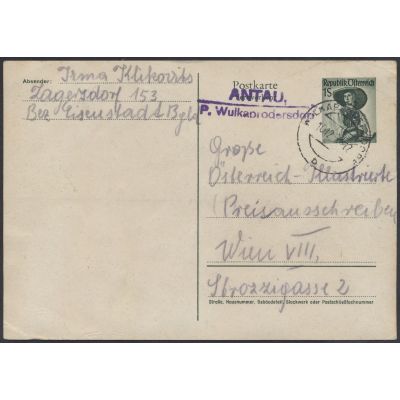 Absender: Irma Klikovits
Zagersdorf 153
Bez Eisenstadt Bgld
Postkarte
ANTAU,
P. Wulkaprodersdorf
Republik Österreich
1S
Große
Österreich-Illustrierte
(Preisausschreiben)
Wien VIII,
Strozzigasse 2
Straße, Hausnummer, Gebäudeteil, Stockwerk oder Postschließfachnummer